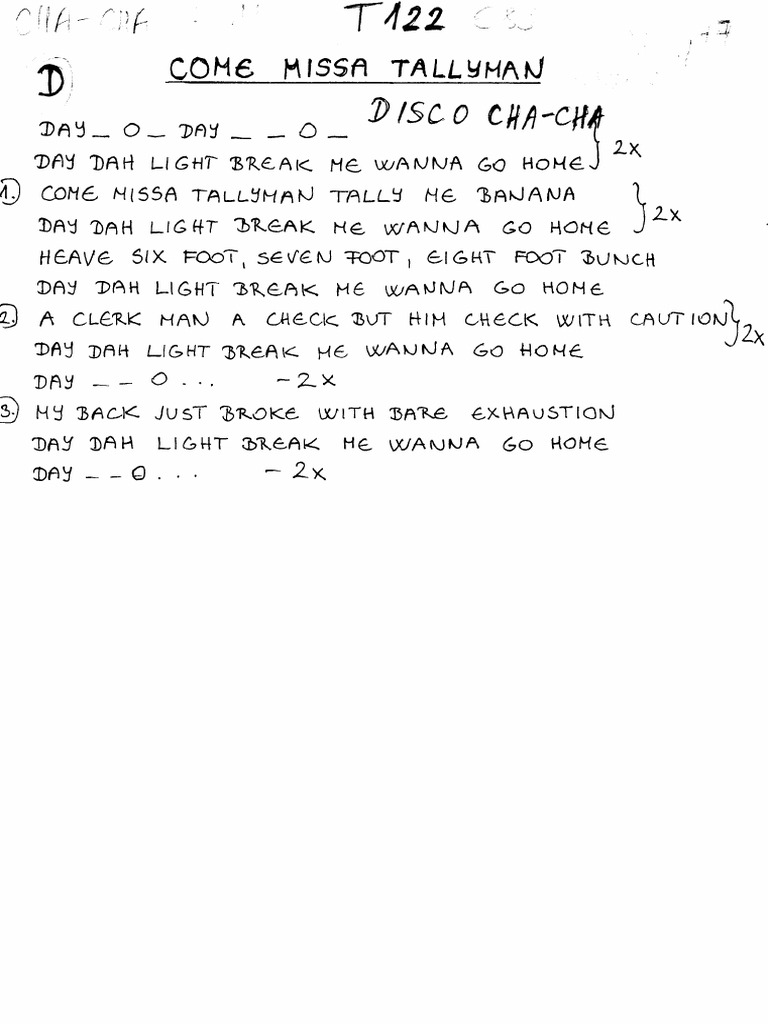 CHA-CHA T122
D COME MISSA TALLYMAN
DISCO CHA-CHA
DAY _ O _ DAY _ _ O _
DAY DAH LIGHT BREAK ME WANNA GO HOME } 2x
1.) COME MISSA TALLYMAN TALLY ME BANANA
DAY DAH LIGHT BREAK ME WANNA GO HOME } 2x
HEAVE SIX FOOT, SEVEN FOOT, EIGHT FOOT BUNCH
DAY DAH LIGHT BREAK ME WANNA GO HOME
2.) A CLERK MAN A CHECK BUT HIM CHECK WITH CAUTION
DAY DAH LIGHT BREAK ME WANNA GO HOME } 2x
DAY _ _ O ... - 2x
3.) MY BACK JUST BROKE WITH BARE EXHAUSTION
DAY DAH LIGHT BREAK ME WANNA GO HOME
DAY _ _ O ... - 2x